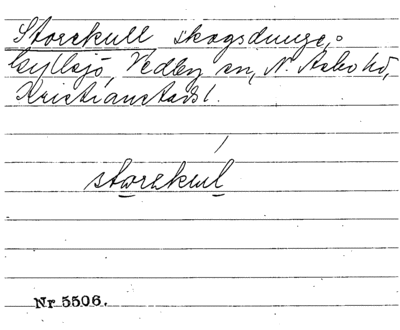 Storekull skogsdunge,
Gyllsjö, Vedby sn, N. Åsbo hd,
Kristianstads l.
storekul
Nr 5506.